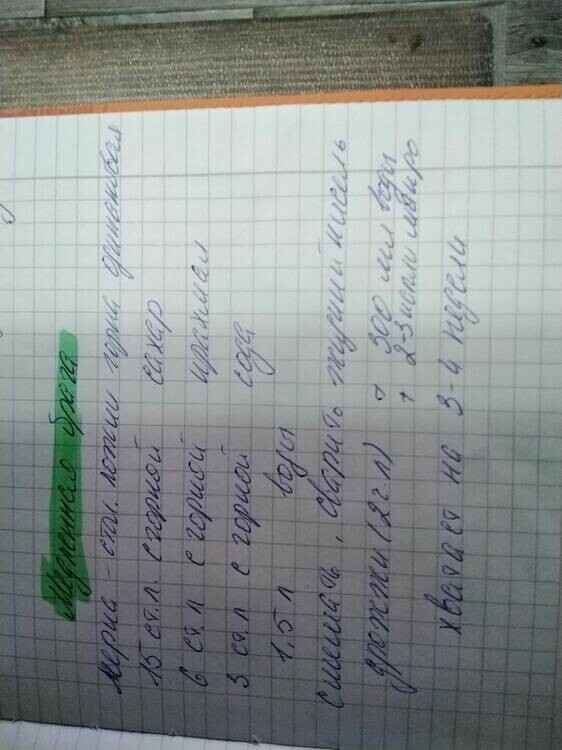 Медленная брага
мерка - стол. ложки горка одинаковая
15 ст.л. с горкой сахар
6 ст.л с горкой крахмал
3 ст.л с горкой сода
1,5 л воды
смешать, сварить жидкий кисель
дрожжи (2 ч.л) + 300 мл воды
+ 2-3 капли
хватает на 3-4 недели